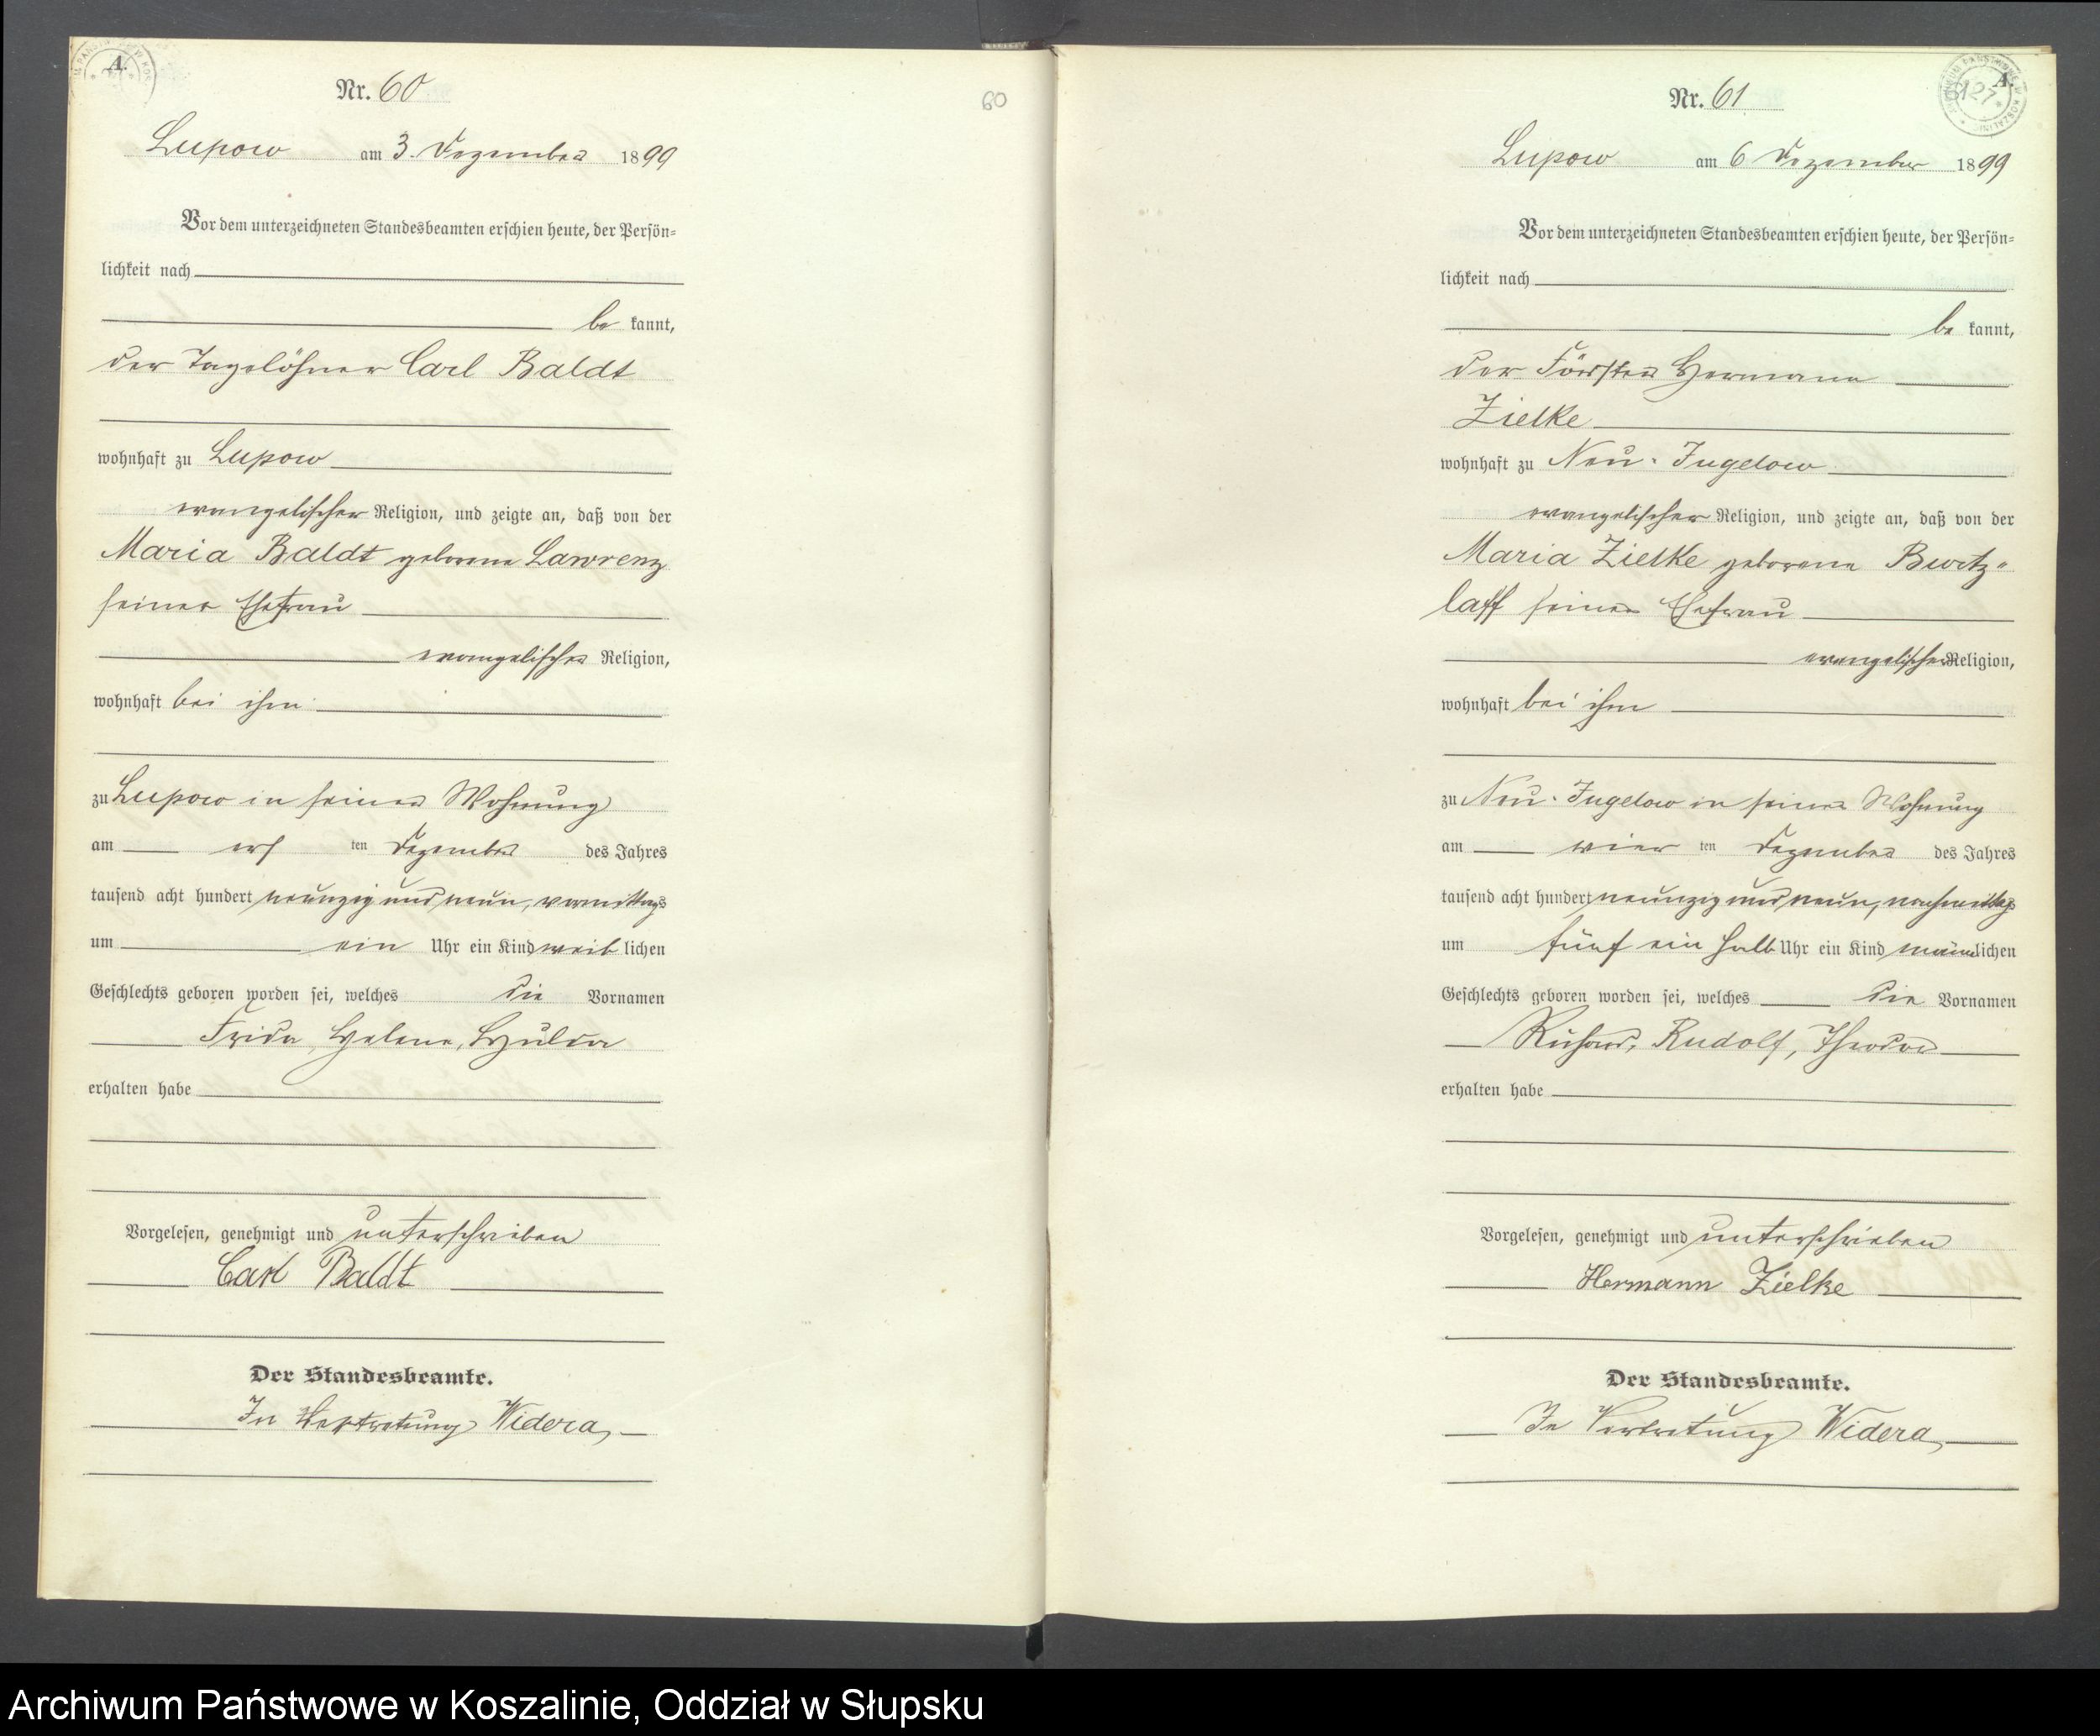 A.
Nr. 60
60
Lupow am 3. Dezember 1899
Vor dem unterzeichneten Standesbeamten erschien heute, der Persön-
lichkeit nach
be kannt,
der Tagelöhner Carl Baldt
wohnhaft zu Lupow
evangelischer Religion, und zeigte an, daß von der
Maria Baldt geborene Lawrenz
seiner Ehefrau
evangelischer Religion,
wohnhaft bei ihm
zu Lupow in seiner Wohnung
am erf ten Dezember des Jahres
tausend acht hundert neunzig und neun, vormittags
um ein Uhr ein Kind weib lichen
Geschlechts geboren worden sei, welches die Vornamen
Frida, Helene, Hulda
erhalten habe
Vorgelesen, genehmigt und unterschrieben
Carl Baldt
Der Standesbeamte.
In Vertretung Widera,
A.
127
Nr. 61
Lupow am 6 Dezember 1899
Vor dem unterzeichneten Standesbeamten erschien heute, der Persön-
lichkeit nach
be kannt,
der Förster Hermann
Zielke
wohnhaft zu Neu-Jugelow
evangelischer Religion, und zeigte an, daß von der
Maria Zielke geborene
laff seiner Ehefrau
evangelischer Religion,
wohnhaft bei ihm
zu Neu-Jugelow in seiner Wohnung
am vier ten Dezember des Jahres
tausend acht hundert neunzig und neun, nachmittags
um fünf ein halb Uhr ein Kind männlichen
Geschlechts geboren worden sei, welches die Vornamen
Richard, Rudolf, Theodor
erhalten habe
Vorgelesen, genehmigt und unterschrieben
Hermann Zielke
Der Standesbeamte.
In Vertretung Widera,
Archiwum Państwowe w Koszalinie, Oddział w Słupsku